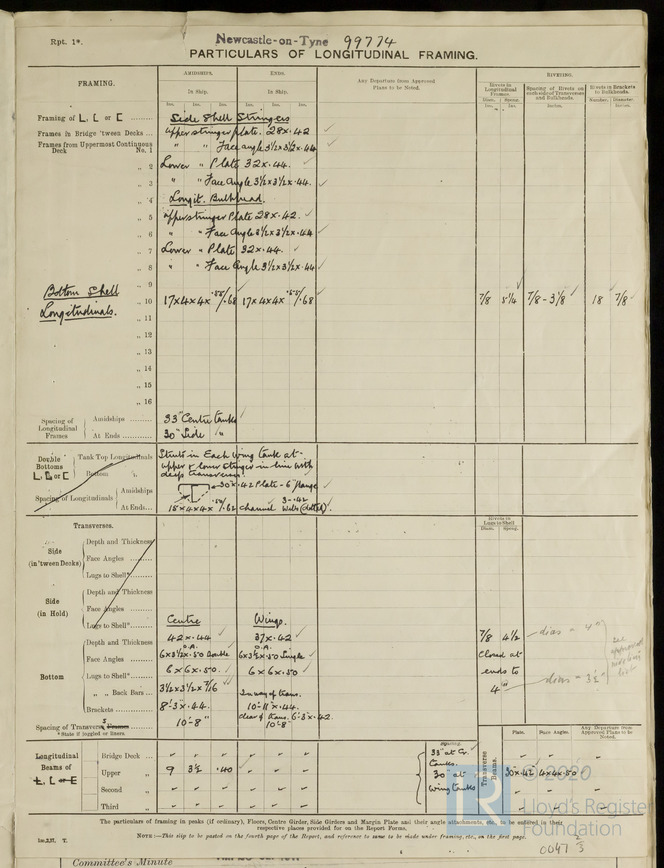 Rpt. 1*.
Newcastle-on-Tyne 99774
PARTICULARS OF LONGITUDINAL FRAMING.
FRAMING.
AMIDSHIPS.
ENDS.
Any Departure from Approved Plans to be Noted.
RIVETING.
In Ship.
In Ship.
Rivets in Longitudinal Frames.
Spacing of Rivets on each side of Transverses and Bulkheads.
Rivets in Brackets to Bulkheads.
Ins. Ins. Ins. Ins. Ins. Ins.
Diam. Spcng.
Number. Diameter
Framing of L, L or C
Side Shell Stringers
Frames in Bridge 'tween Decks ...
upper stringer plate. 28 x .42
Frames from Uppermost Continuous Deck No. 1
" " Face angle 3½ x 3½ x .44
„ 2
Lower " Plate 32 x .44.
„ 3
" " Face Angle 3½ x 3½ x .44.
„ 4
Longit. Bulkhead.
„ 5
upper stringer Plate 28 x .42.
„ 6
" " Face Angle 3½ x 3½ x .44
„ 7
Lower " Plate 32 x .44.
„ 8
" " Face Angle 3½ x 3½ x .44
„ 9
Bottom Shell Longitudinals.
„ 10
17 x 4 x 4 x /.68 17 x 4 x 4 x /.68
7/8 5¼ 7/8 - 3⅛ 18 7/8
„ 11
„ 12
„ 13
„ 14
„ 15
„ 16
Spacing of Longitudinal Frames
Amidships
33" Centre tanks
At Ends
30" Side "
Double Bottoms L, L or C
Tank Top Longitudinals
Bottom „
Spacing of Longitudinals
Amidships
At Ends...
Struts in Each Wing tank at
upper & lower stringer in line with
deep transverses.
30 x .42 Plate - 6" flange
15 x 4 x 4 x /.62 channel
Transverses.
Rivets in Lugs to Shell
Diam. Spcng.
Side (in 'tween Decks)
Depth and Thickness
Face Angles
Lugs to Shell*
Side (in Hold)
Depth and Thickness
Face Angles
Lugs to Shell*
Centre Wings.
Bottom
Depth and Thickness
42 x .44 37 x .42
7/8 4½
dias = 4"
O.A. O.A.
Face Angles
6 x 3½ x .50 Double 6 x 3½ x .50 Single
closed at
Lugs to Shell*
6 x 6 x .50. 6 x 6 x .50.
ends to
4
dias = 3½"
„ „ Back Bars ...
3½ x 3½ x 7/16 In way of trans.
Brackets
8'-3" x .44. 10'-11" x .44.
clear of trans. 6'-3" x .42
Spacing of Transverses
10'-8" 10'-8"
* State if joggled or liners
Longitudinal Beams of L, L or C
Bridge Deck ...
Upper „
9 3½ .40
Second „
Third „
Spacing.
33" at Cr. Tanks.
30" at wing tanks
Transverse Beams.
Plate. Face Angles. Any Departure from Approved Plans to be Noted.
30 x .42 4 x 4 x .50
The particulars of framing in peaks (if ordinary), Floors, Centre Girder, Side Girders and Margin Plate and their angle attachments, etc., to be entered in their
respective places provided for on the Report Forms.
NOTE:—This slip to be posted on the fourth page of the Report, and reference to same to be made under framing, etc., on the first page.
© 2020
Lloyd's Register
Foundation
0047 2/3
Committee's Minute